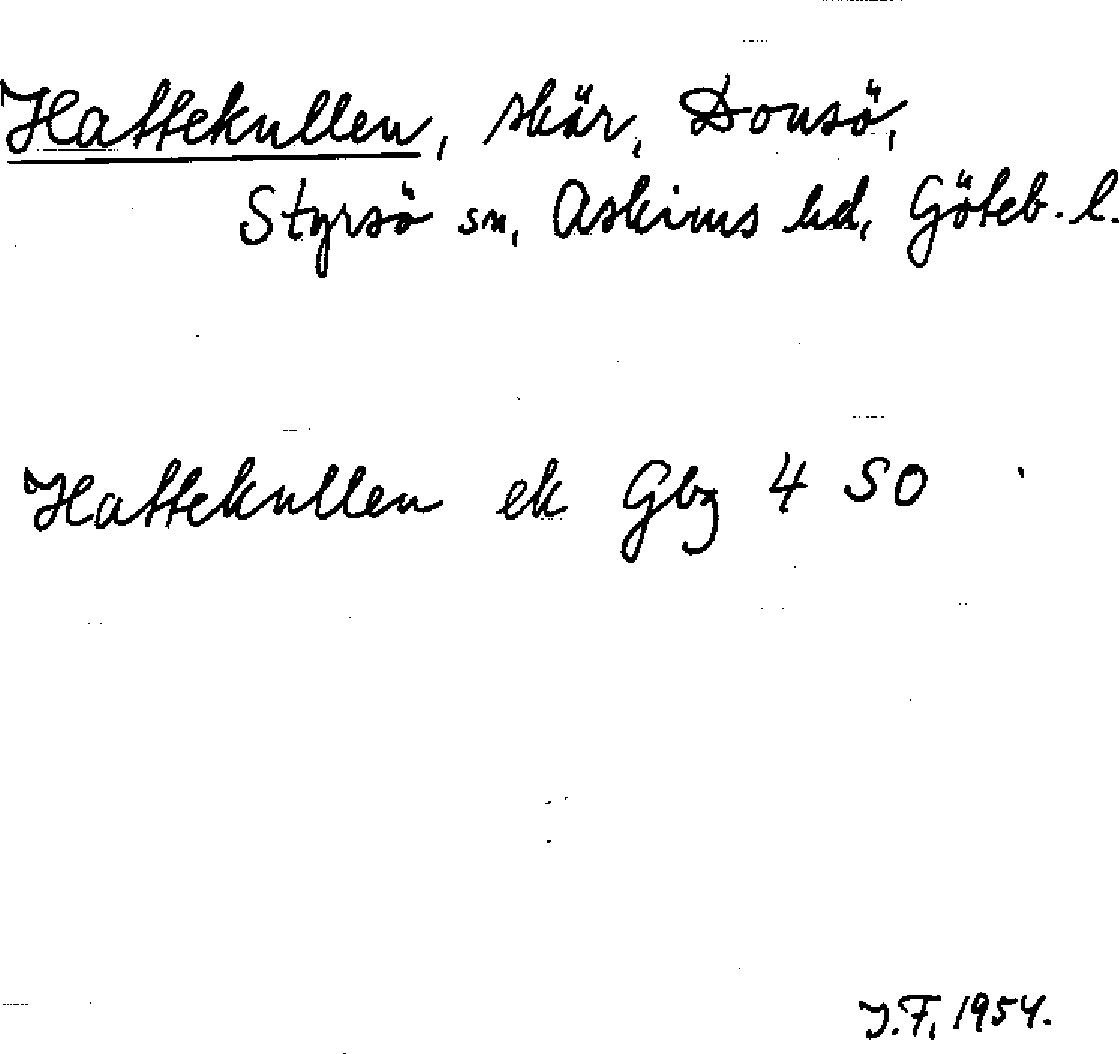 Hattekullen, skär, Donsö,
Styrsö sn, Askims hd, Göteb. l.
Hattekullen ek Gbg 4 SO
J.F. 1954.